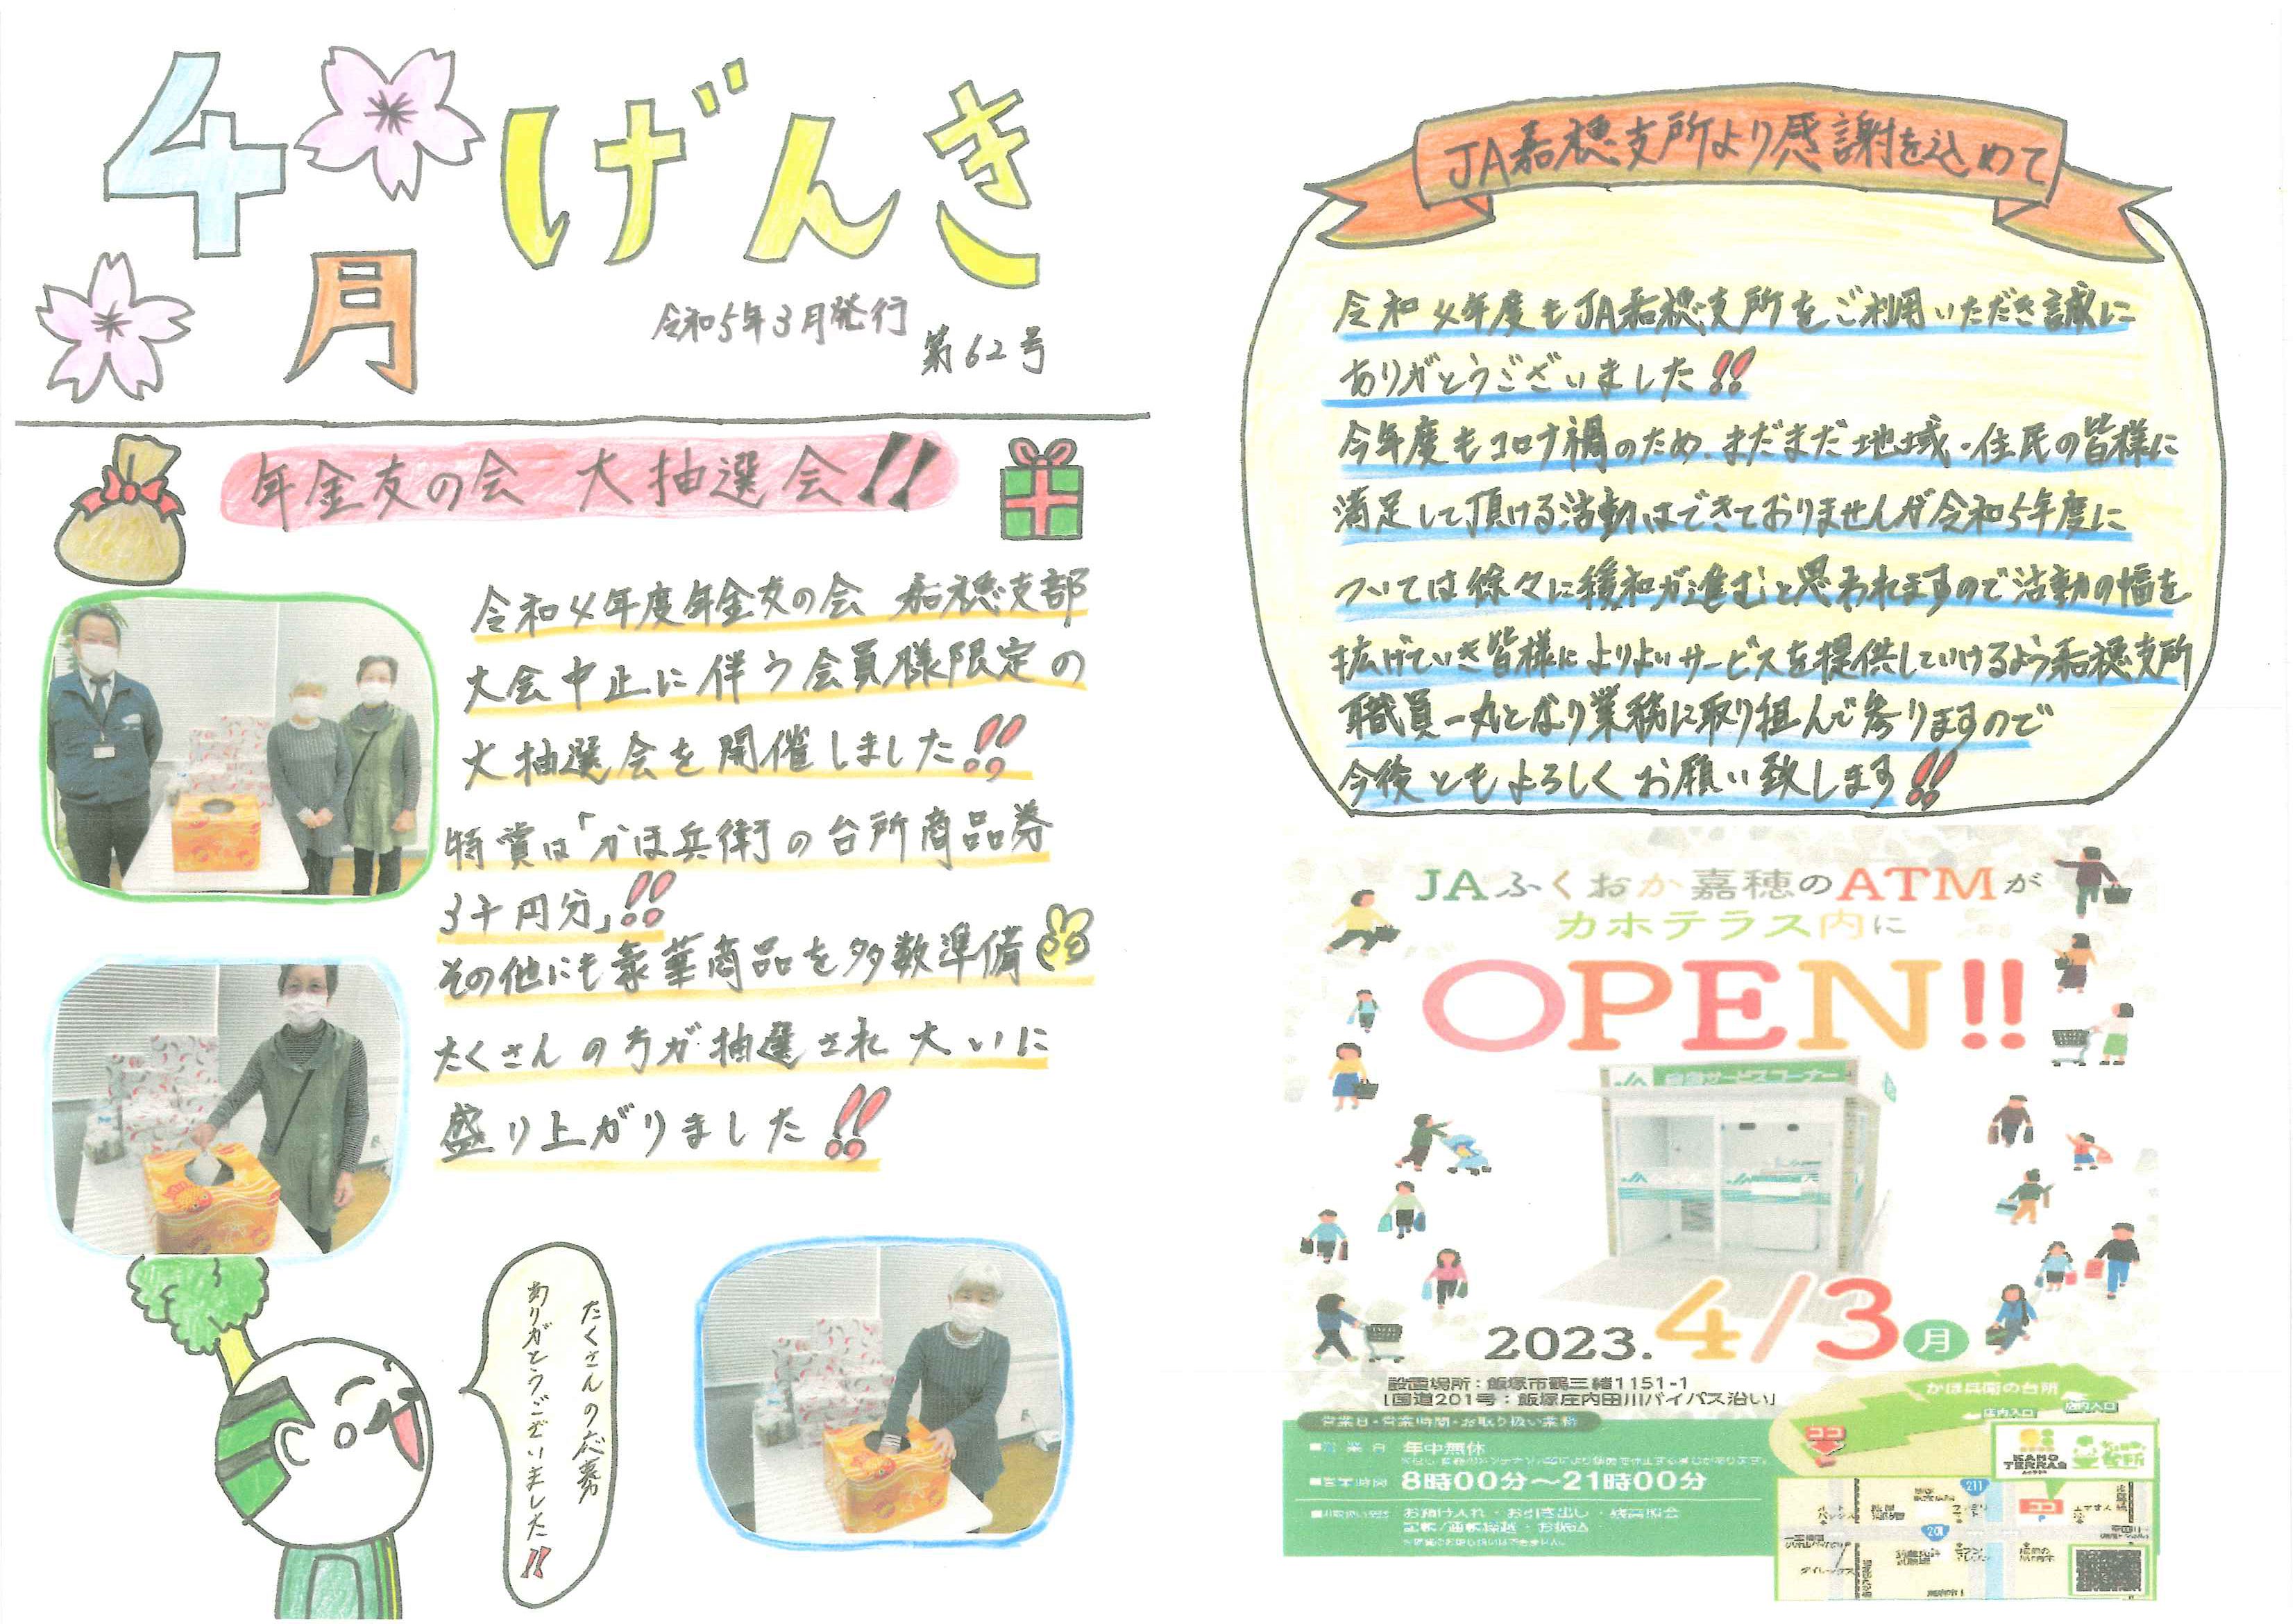 4月
げんき
令和5年3月発行
第62号
年金友の会 大抽選会!!
令和4年度年金友の会 嘉穂支部
大会中止に伴う会員様限定の
大抽選会を開催しました!!
特賞は「かほ兵衛の台所商品券
3千円分」!!
その他にも豪華商品を多数準備
たくさんの方が抽選され 大いに
盛り上がりました!!
たくさんの応募
ありがとうございました!!
JA嘉穂支所より感謝を込めて
令和4年度もJA嘉穂支所をご利用いただき誠に
ありがとうございました!!
今年度もコロナ禍のため、まだまだ地域・住民の皆様に
満足して頂ける活動はできておりませんが令和5年度に
ついては徐々に緩和が進むと思われますので活動の幅を
拡げていき皆様によりよいサービスを提供していけるよう嘉穂支所
職員一丸となり業務に取り組んで参りますので
今後ともよろしくお願い致します!!
JAふくおか嘉穂のATMが
カホテラス内に
OPEN!!
サービスコーナー
2023.4/3月
設置場所：飯塚市鶴三緒1151-1
[国道201号：飯塚庄内田川バイパス沿い]
営業日・営業時間・お取り扱い業務
■営業日 年中無休
■営業時間 8時00分～21時00分
お預け入れ・お引き出し・残高照会
記帳/通帳繰越・お振込
かほ兵衛の台所
店内入口
店内入口
ココ
KAHO TERRAS
211
ココ
P
201
ダイレックス